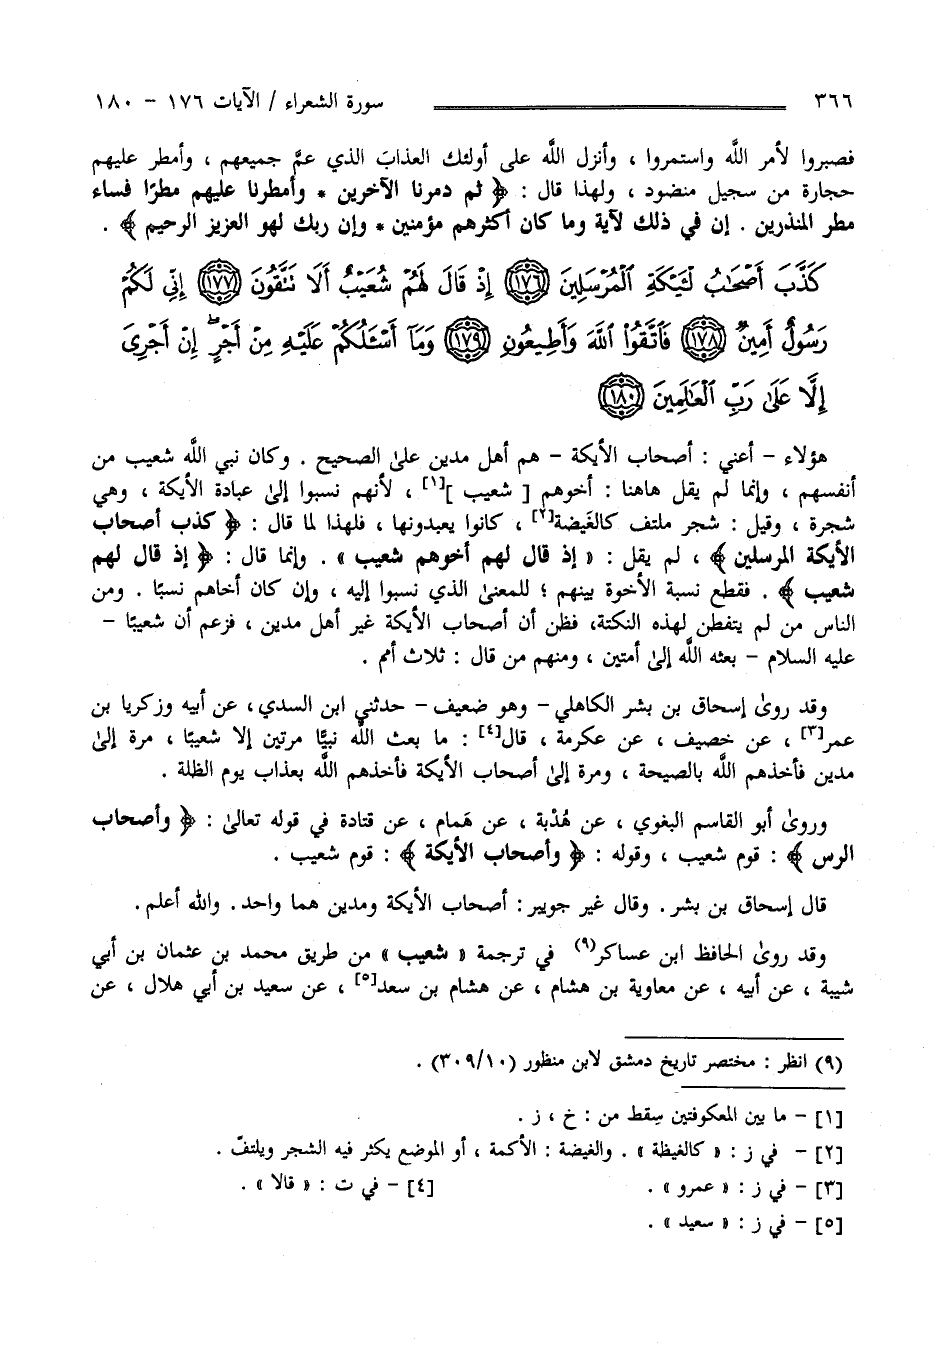 ٣٦٦ سورة الشعراء / الآيات ١٧٦ - ١٨٠
فصبروا لأمر الله واستمروا ، وأنزل الله على أولئك العذابَ الذي عمَّ جميعهم ، وأمطر عليهم
حجارة من سجيل منضود ، ولهذا قال : ﴿ ثم دمرنا الآخرين * وأمطرنا عليهم مطرًا فساء
مطر المنذرين . إن في ذلك لآية وما كان أكثرهم مؤمنين * وإن ربك لهو العزيز الرحيم ﴾ .
كَذَّبَ أَصْحَٰبُ لْـَٔيْكَةِ ٱلْمُرْسَلِينَ ﴿١٧٦﴾ إِذْ قَالَ لَهُمْ شُعَيْبٌ أَلَا تَتَّقُونَ ﴿١٧٧﴾ إِنِّى لَكُمْ
رَسُولٌ أَمِينٌ ﴿١٧٨﴾ فَٱتَّقُوا۟ ٱللَّهَ وَأَطِيعُونِ ﴿١٧٩﴾ وَمَآ أَسْـَٔلُكُمْ عَلَيْهِ مِنْ أَجْرٍ ۖ إِنْ أَجْرِىَ
إِلَّا عَلَىٰ رَبِّ ٱلْعَٰلَمِينَ ﴿١٨٠﴾
هؤلاء - أعني : أصحاب الأيكة - هم أهل مدين على الصحيح . وكان نبي الله شعيب من
أنفسهم ، وإنما لم يقل هاهنا : أخوهم [ شعيب ][١] ، لأنهم نسبوا إلىٰ عبادة الأيكة ، وهي
شجرة ، وقيل : شجر ملتف كالغَيضة[٢] ، كانوا يعبدونها ، فلهذا لما قال : ﴿ كذب أصحاب
الأيكة المرسلين ﴾ ، لم يقل : « إذ قال لهم أخوهم شعيب » . وإنما قال : ﴿ إذ قال لهم
شعيب ﴾ . فقطع نسبة الأخوة بينهم ؛ للمعنىٰ الذي نسبوا إليه ، وإن كان أخاهم نسبًا . ومن
الناس من لم يتفطن لهذه النكتة، فظن أن أصحاب الأيكة غير أهل مدين ، فزعم أن شعيبًا -
عليه السلام - بعثه الله إلىٰ أمتين ، ومنهم من قال : ثلاث أمم .
وقد روىٰ إسحاق بن بشر الكاهلي - وهو ضعيف - حدثني ابن السدي، عن أبيه وزكريا بن
عمر[٣] ، عن خصيف ، عن عكرمة ، قال[٤] : ما بعث الله نبيًّا مرتين إلا شعيبًا ، مرة إلىٰ
مدين فأخذهم الله بالصيحة ، ومرة إلىٰ أصحاب الأيكة فأخذهم الله بعذاب يوم الظلة .
وروىٰ أبو القاسم البغوي ، عن هُدْبة ، عن هَمام ، عن قتادة في قوله تعالىٰ : ﴿ وأصحاب
الرس ﴾ : قوم شعيب ، وقوله : ﴿ وأصحاب الأيكة ﴾ : قوم شعيب .
قال إسحاق بن بشر. وقال غير جويبر: أصحاب الأيكة ومدين هما واحد. والله أعلم .
وقد روىٰ الحافظ ابن عساكر(٩) في ترجمة « شعيب » من طريق محمد بن عثمان بن أبي
شيبة ، عن أبيه ، عن معاوية بن هشام ، عن هشام بن سعد[٥] ، عن سعيد بن أبي هلال ، عن
(٩) انظر : مختصر تاريخ دمشق لابن منظور (٣٠٩/١٠) .
[١] - ما بين المعكوفتين سقط من : خ ، ز .
[٢] - في ز : « كالغيظة » . والغيضة : الأكمة ، أو الموضع يكثر فيه الشجر ويلتفّ .
[٣] - في ز : « عمرو » . [٤] - في ت : « قالا » .
[٥] - في ز : « سعيد » .